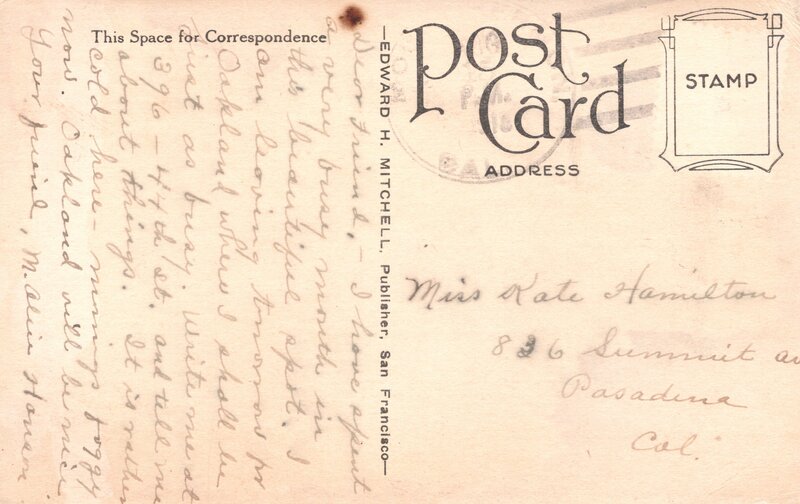 This Space for Correspondence
Dear Friend, - I have spent
a very busy month in
this beautiful spot. I
am leaving tomorrow for
Oakland where I shall be
just as busy. Write me at
396 - 44th St. and tell me
about things. It is rather
cold here - mornings foggy
now. Oakland will be nice
Your friend, M. Alice Hanson
—EDWARD H. MITCHELL, Publisher, San Francisco—
Post
Card
ADDRESS
STAMP
CAL
Miss Kate Hamilton
836 Summit av
Pasadena
Cal.